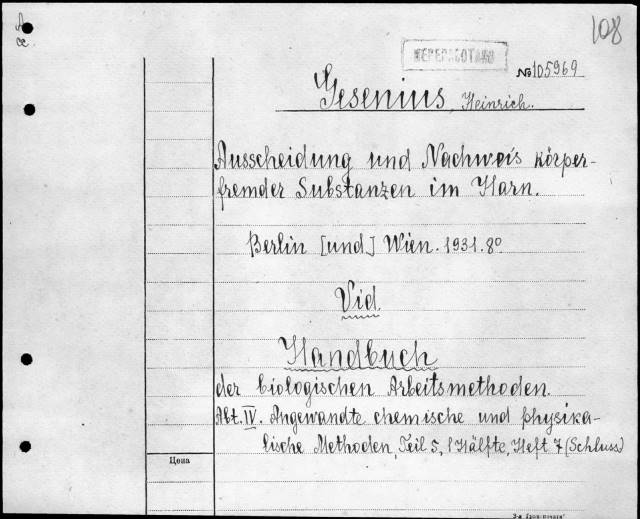 108
ПЕРЕРАБОТАНО
№105969
Gesenius, Heinrich.
Ausscheidung und Nachweis körper-
fremder Substanzen im Harn.
Berlin [und] Wien. 1931. 8º
Vid.
Handbuch
der biologischen Arbeitsmethoden.
Abt. IV. Angewandte chemische und physika-
lische Methoden, Teil 5, 1 Hälfte, Heft 7 (Schluss)
Цена